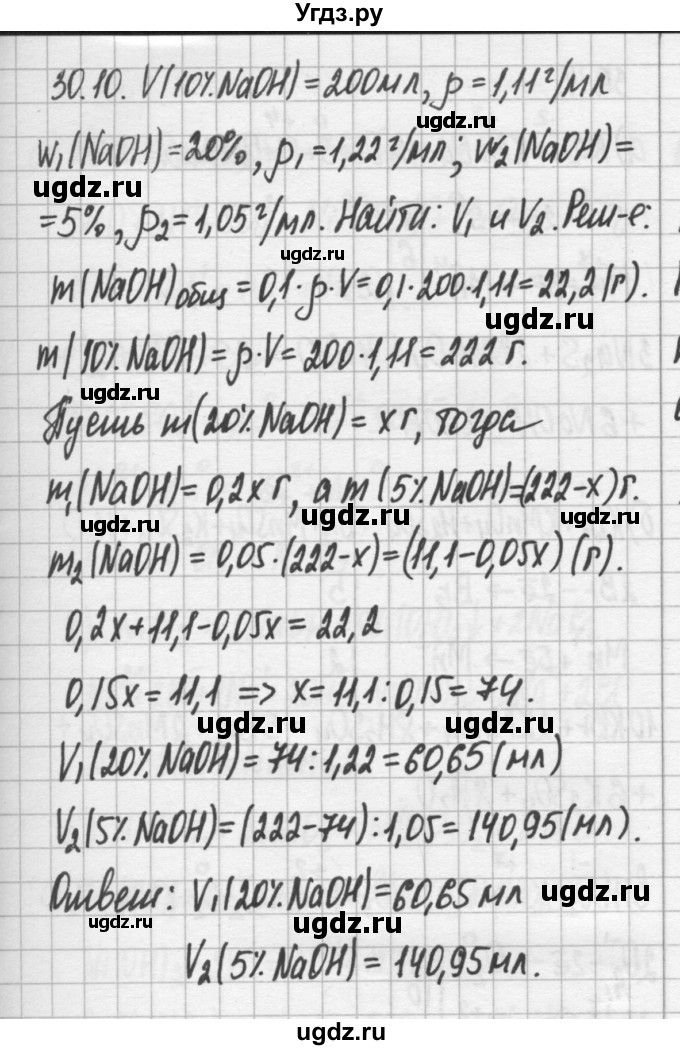 Угдз.ру
30.10. V(10% NaOH) = 200мл, ρ = 1,11 г/мл
ugdz.ru
w₁(NaOH) = 20%, ρ₁ = 1,22 г/мл; w₂(NaOH) =
ugdz.ru
= 5%, ρ₂ = 1,05 г/мл. Найти: V₁ и V₂. Реш-е:
ugdz.ru
m(NaOH)общ = 0,1·ρ·V = 0,1·200·1,11 = 22,2 (г).
ugdz.ru
m(10% NaOH) = ρ·V = 200·1,11 = 222 г.
ugdz.ru
Пусть m(20% NaOH) = x г, тогда
m₁(NaOH) = 0,2x г, а m (5% NaOH) = (222-x) г.
ugdz.ru ugdz.ru ugdz.ru
m₂(NaOH) = 0,05·(222-x) = (11,1-0,05x) (г).
0,2x+11,1-0,05x = 22,2
ugdz.ru
0,15x = 11,1 => x = 11,1:0,15 = 74.
ugdz.ru ugdz.ru
V₁(20% NaOH) = 74:1,22 = 60,65 (мл)
V₂(5% NaOH) = (222-74):1,05 = 140,95 (мл).
ugdz.ru ugdz.ru
Ответ: V₁(20% NaOH) = 60,65 мл
ugdz.ru ugdz.ru ugdz.ru
V₂(5% NaOH) = 140,95 мл.
ugdz.ru
ugdz.ru